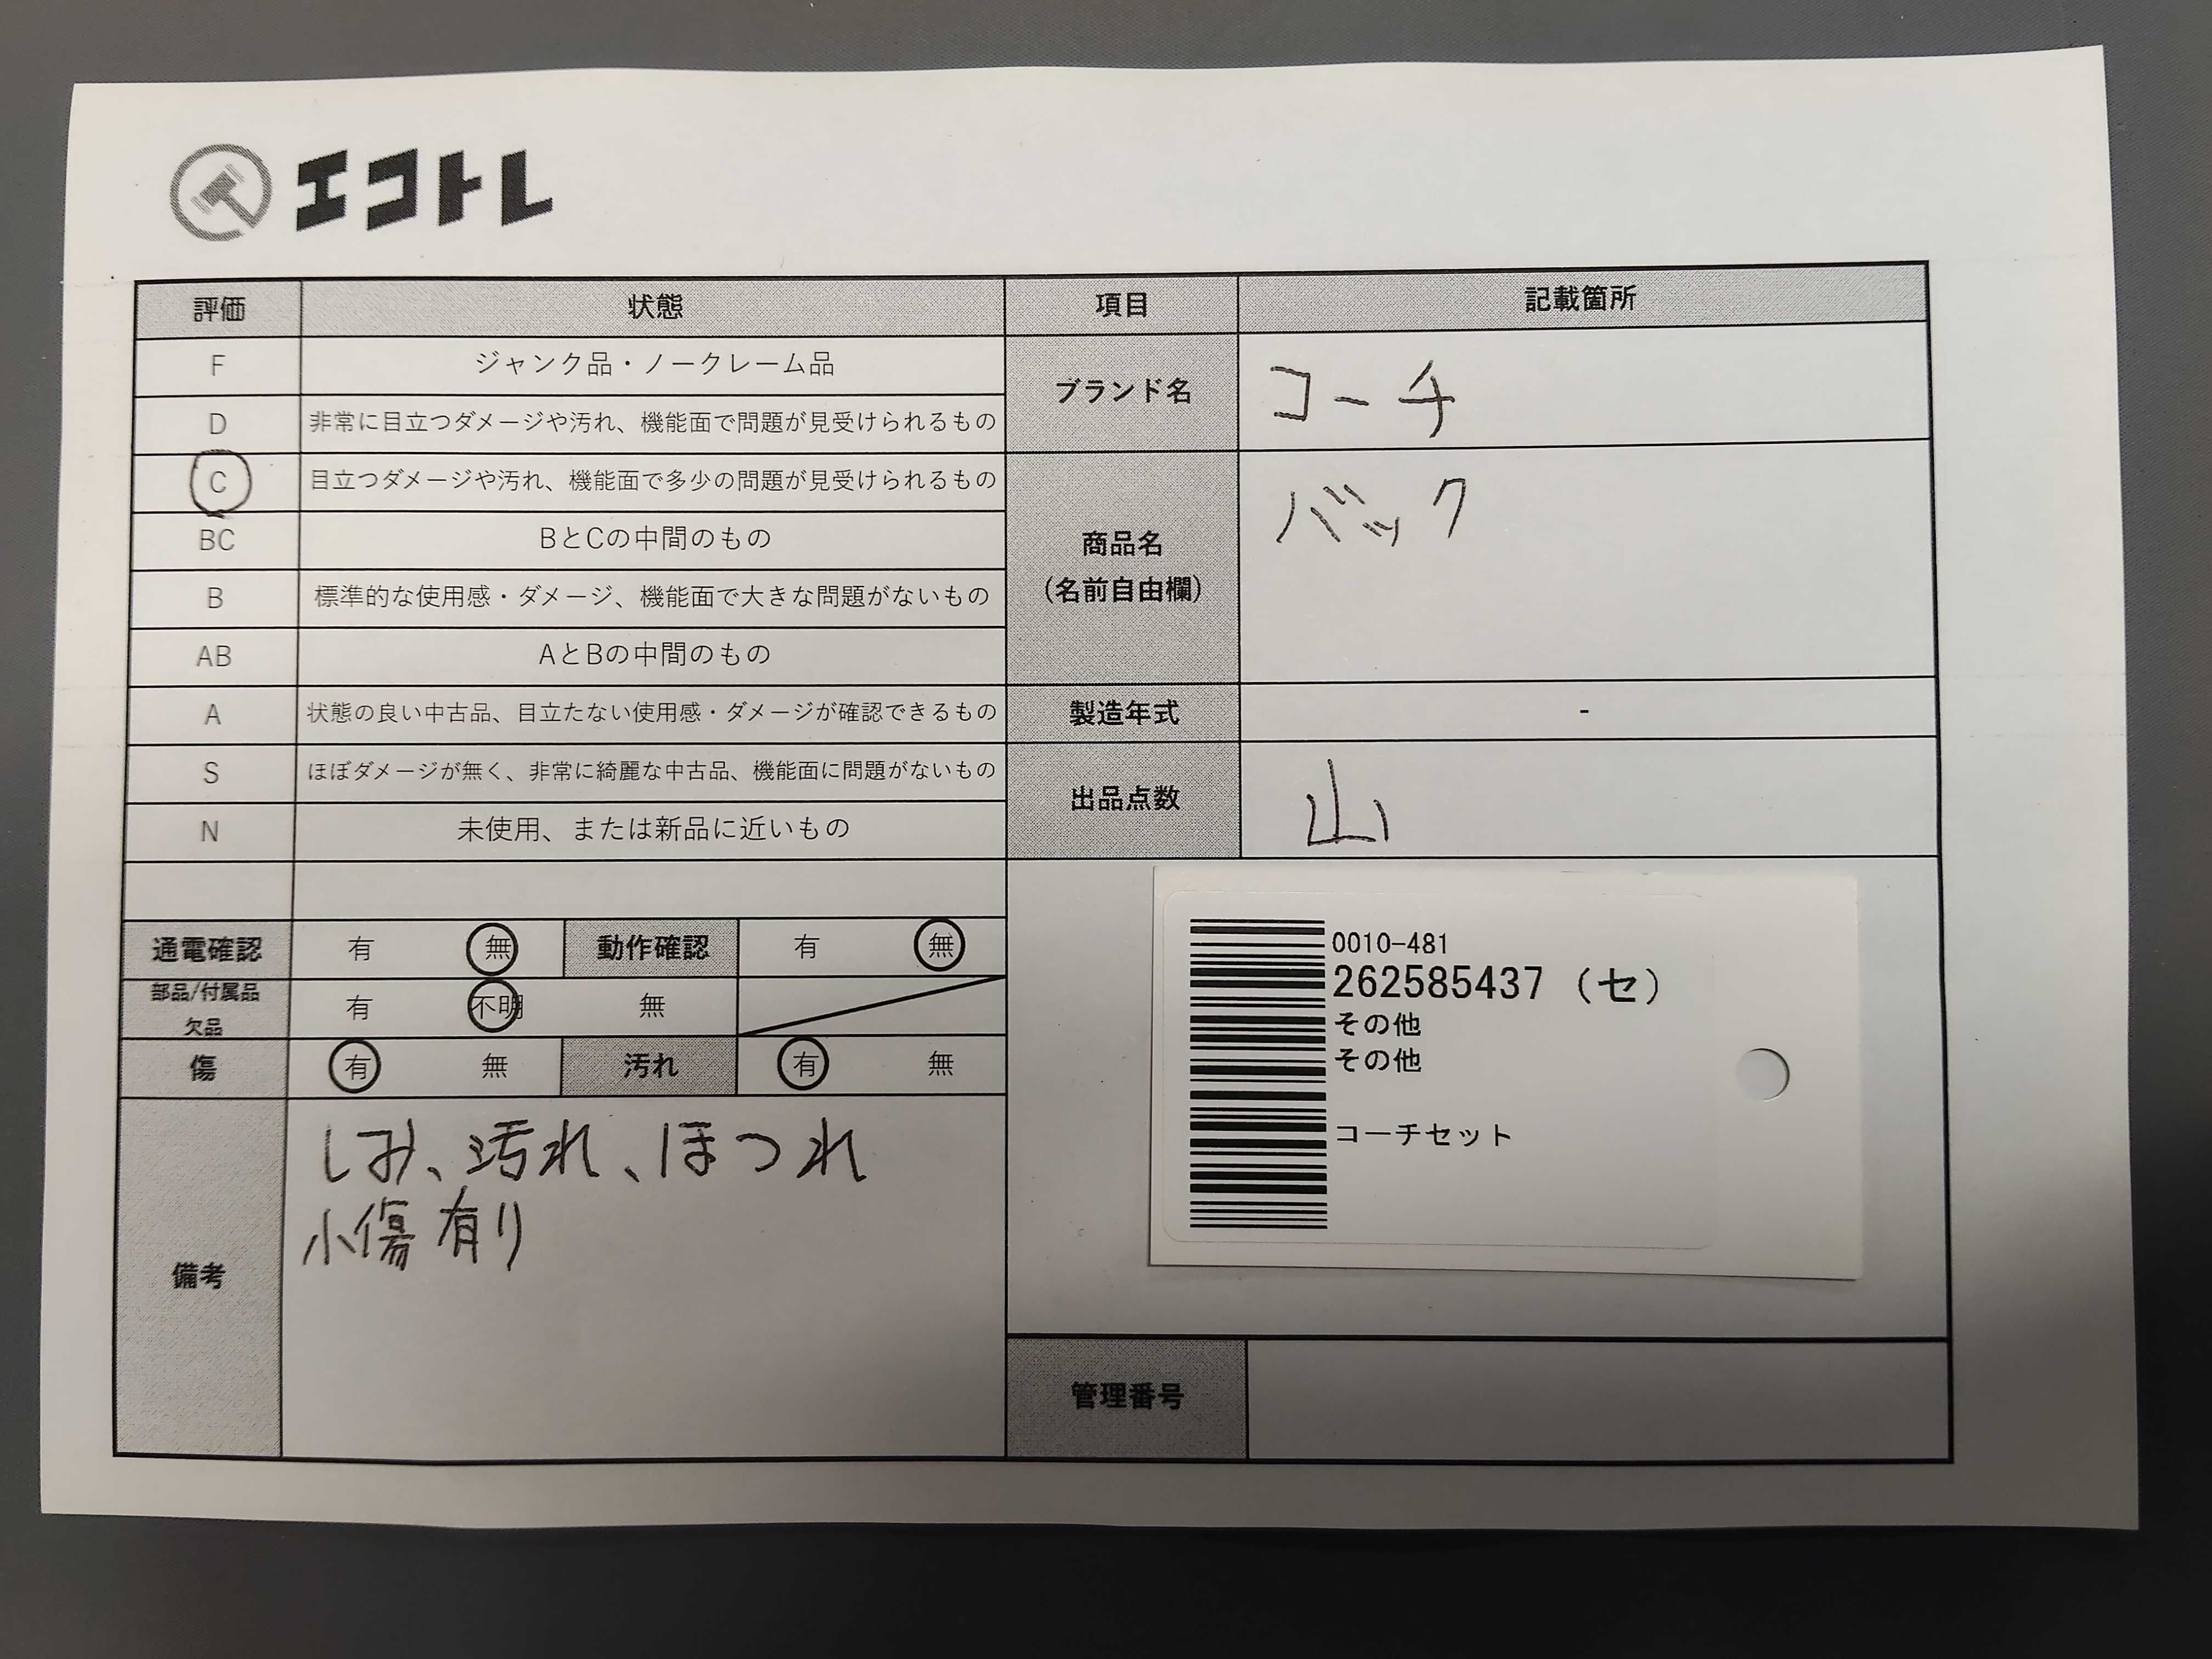 エコトレ
評価 状態 項目 記載箇所
F ジャンク品・ノークレーム品
D 非常に目立つダメージや汚れ、機能面で問題が見受けられるもの
C 目立つダメージや汚れ、機能面で多少の問題が見受けられるもの
BC BとCの中間のもの
B 標準的な使用感・ダメージ、機能面で大きな問題がないもの
AB AとBの中間のもの
A 状態の良い中古品、目立たない使用感・ダメージが確認できるもの
S ほぼダメージが無く、非常に綺麗な中古品、機能面に問題がないもの
N 未使用、または新品に近いもの
ブランド名 コーチ
商品名 バック
(名前自由欄)
製造年式 -
出品点数 山
通電確認 有 無 動作確認 有 無
部品/付属品
欠品 有 不明 無
傷 有 無 汚れ 有 無
備考
しみ、汚れ、ほつれ
小傷有り
0010-481
262585437 (セ)
その他
その他
コーチセット
管理番号